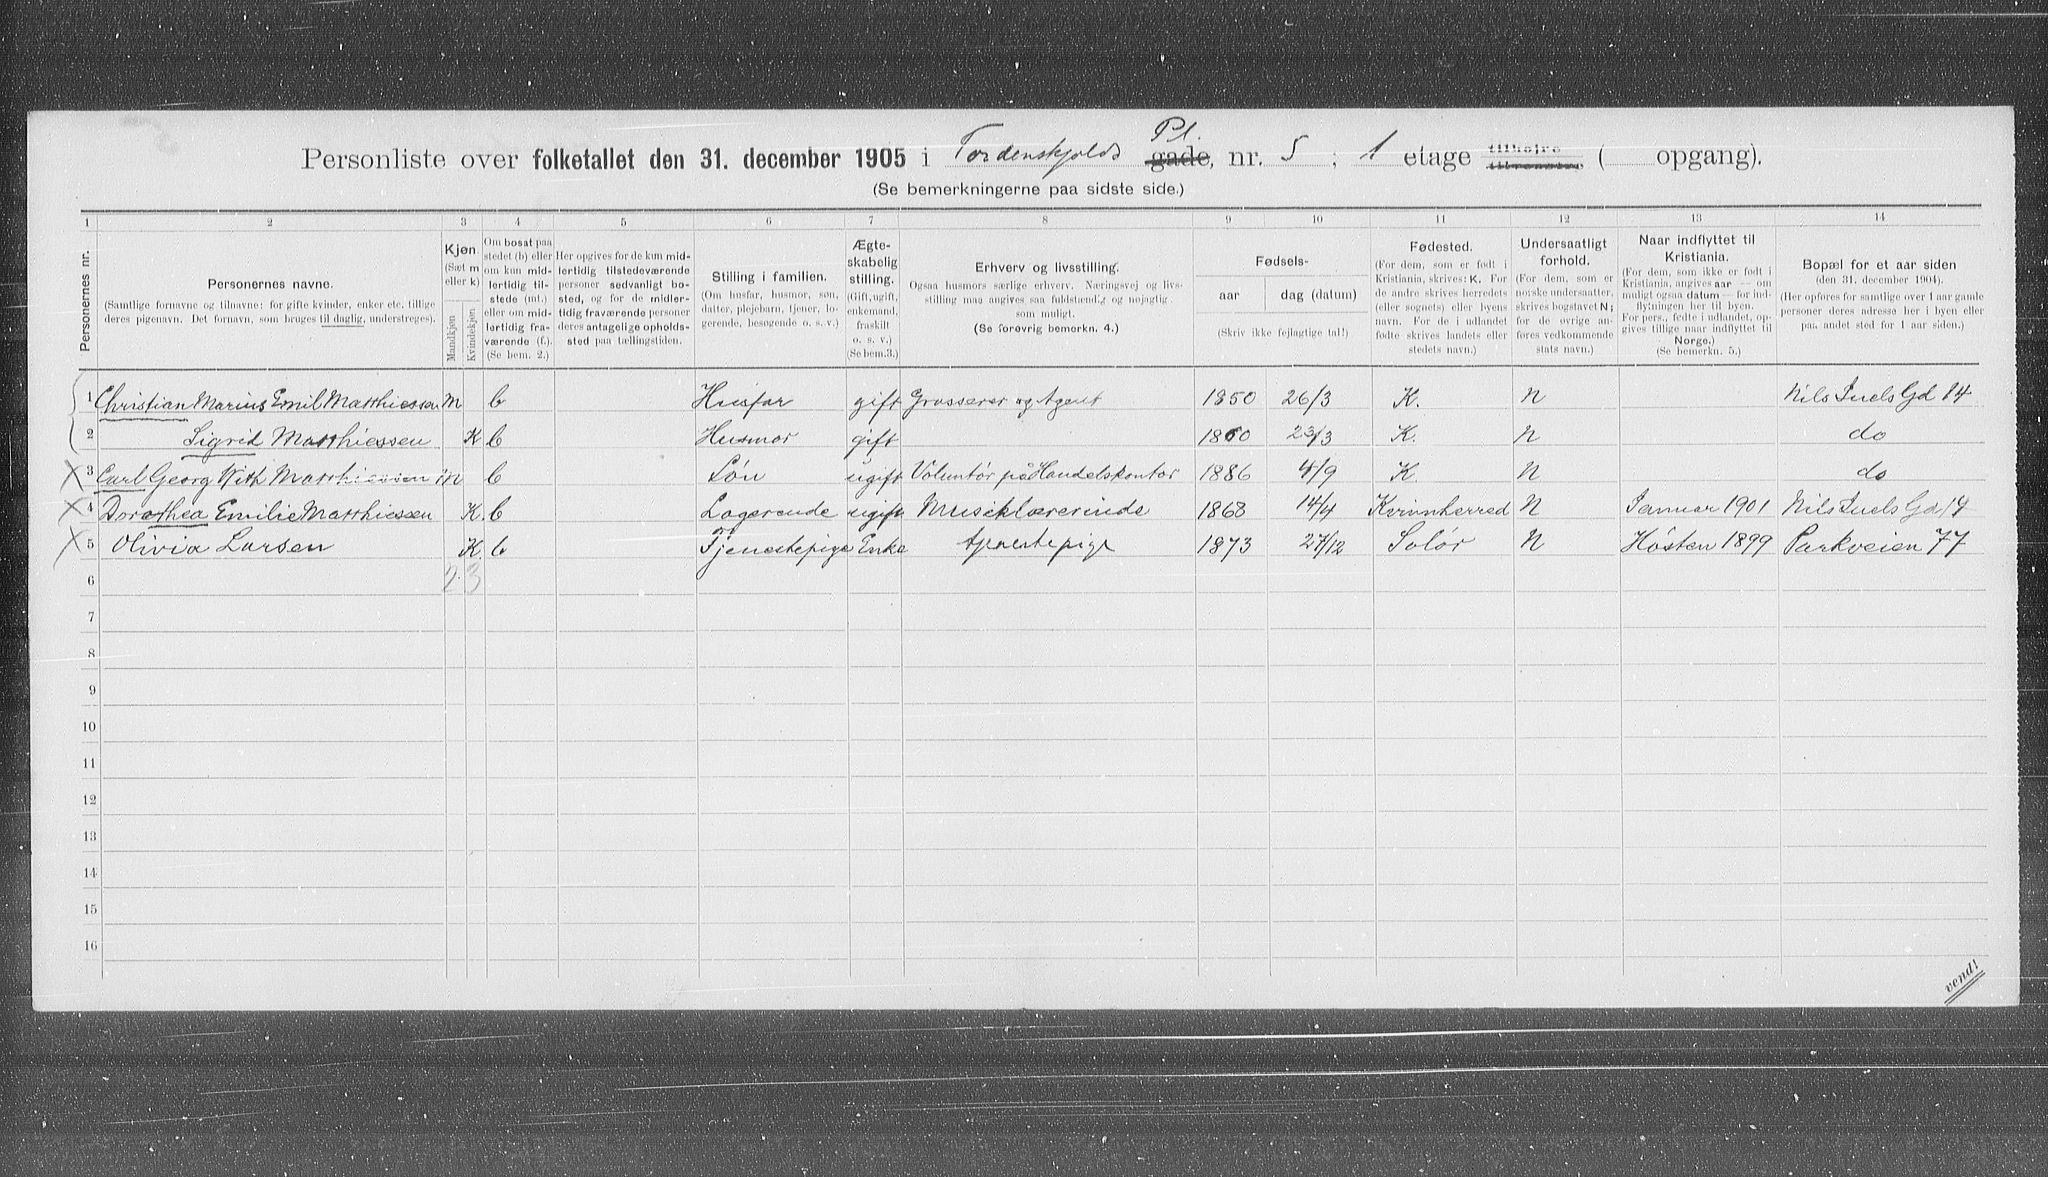 Personliste over folketallet den 31. december 1905 i Tordenskjolds Pl. gade, nr. 5 ; 1 etage tilhøjre tilvenstre ( opgang).
(Se bemerkningerne paa sidste side.)
1 2 3 4 5 6 7 8 9 10 11 12 13 14
Personernes nr.
Personernes navne.
(Samtlige fornavne og tilnavne: for gifte kvinder, enker etc. tillige
deres pigenavn. Det fornavn, som bruges til daglig, understreges).
Kjøn.
(Sæt m
eller k)
Mandkjøn
Kvindekjøn.
Om bosat paa
stedet (b) eller
om kun mid-
lertidig til-
stede (mt.)
eller om mid-
lertidig fra-
værende (f.).
(Se bem. 2.)
Her opgives for de kun mid-
lertidig tilstedeværende
personer sedvanligt bo-
sted, og for de midler-
tidig fraværende personer
deres antagelige opholds-
sted paa tællingstiden.
Stilling i familien.
(Om husfar, husmor, søn,
datter, plejebarn, tjener, lo-
gerende, besøgende o. s. v.)
Ægte-
skabelig
stilling.
(Gift, ugift,
enkemand,
fraskilt
o. s. v.)
(Se bem. 3.)
Erhverv og livsstilling.
Ogsaa husmors særlige erhverv. Næringsvej og livs-
stilling maa angives saa fuldstændig og nøjagtig
som muligt.
(Se forøvrig bemerkn. 4.)
Fødsels-
aar
dag (datum)
(Skriv ikke fejlagtige tal!)
Fødested.
(For dem, som er født i
Kristiania, skrives: K. For
de andre skrives herredets
(eller sognets) eller byens
navn. For de i udlandet
fødte skrives landets eller
stedets navn.)
Undersaatligt
forhold.
(For dem, som er
norske undersaatter,
skrives bogstavet N;
for de øvrige an-
føres vedkommende
stats navn.)
Naar indflyttet til
Kristiania.
(For dem, som ikke er født i
Kristiania, angives aar — om
muligt ogsaa datum — for ind-
flytningen her til byen.
For pers., fødte i udlandet, op-
gives tillige naar indflyttet til
Norge.)
(Se bemerkn. 5.)
Bopæl for et aar siden
(den 31. december 1904).
(Her opføres for samtlige over 1 aar gamle
personer deres adresse her i byen eller
paa andet sted for 1 aar siden.)
1 Christian Marius Emil Matthiessen m b Husfar gift Grosserer og Agent 1850 26/3 K. N Nils Juels Gd 14
2 Sigrid Matthiessen K b Husmor gift 1860 23/3 K. N do
3 Carl Georg With Matthiessen m b Søn ugift Voluntør på Handelskontor 1886 4/9 K. N do
4 Dorothea Emilie Matthiessen K. b Logerende ugift Musiklærerinde 1868 14/4 Kvinnherred N Januar 1901 Nils Juels Gd 14
5 Olivia Larsen K b Tjenestepige Enke tjenestepige 1873 27/12 Solør N Høsten 1899 Parkveien 77
6 2 3
7
8
9
10
11
12
13
14
15
16
vend!